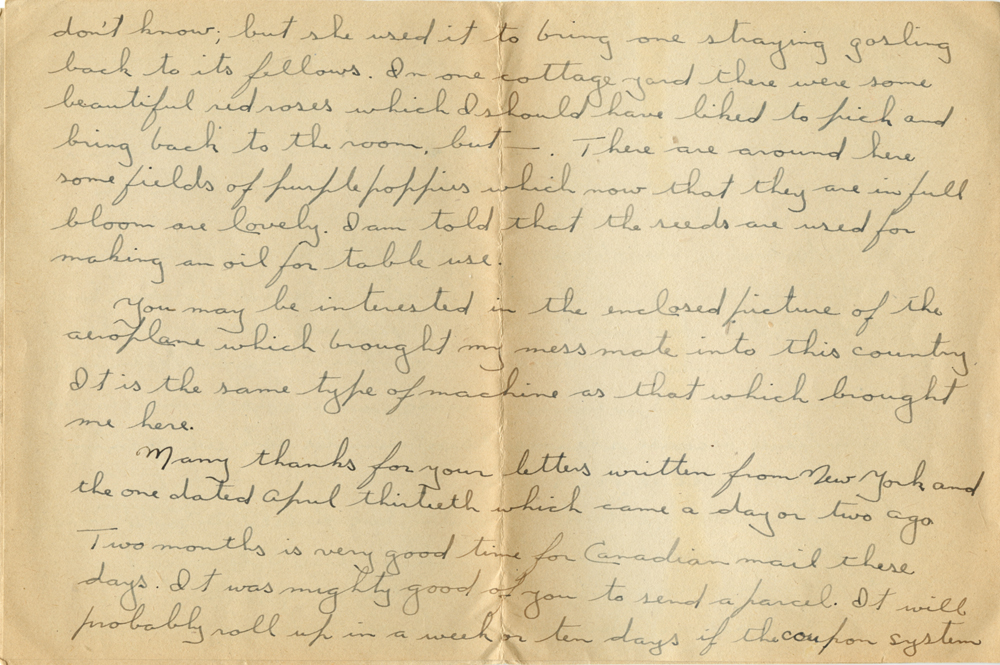 don't know; but she used it to bring one straying gosling
back to its fellows. In one cottage yard there were some
beautiful red roses which I should have liked to pick and
bring back to the room, but — . There are around here
some fields of purple poppies which now that they are in full
bloom are lovely. I am told that the seeds are used for
making an oil for table use.
You may be interested in the enclosed picture of the
aeroplane which brought my mess mate into this country.
It is the same type of machine as that which brought
me here.
Many thanks for your letters written from New York and
the one dated April thirtieth which came a day or two ago
Two months is very good time for Canadian mail these
days. It was mighty good of you to send a parcel. It will
probably roll up in a week or ten days if the coupon system